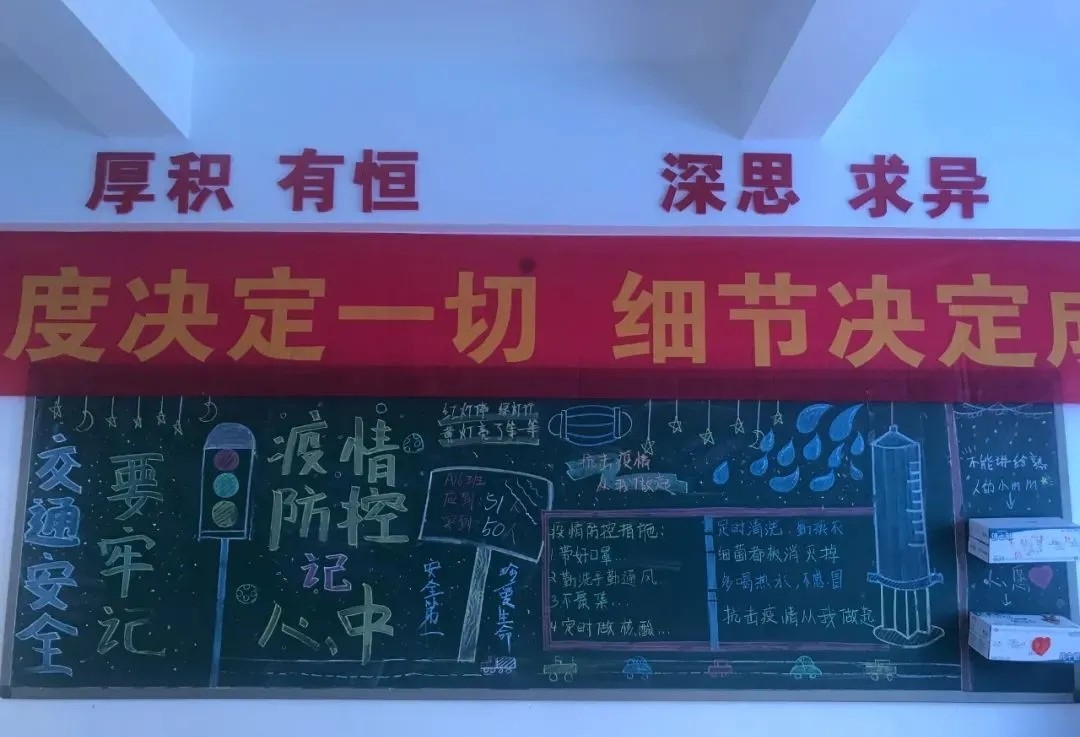 厚积 有恒 深思 求异
度决定一切 细节决定成
交通安全
要牢记
疫情
防控
记
心中
红灯停 绿灯行
黄灯亮了等一等
A16班
应到:51人
实到:50人
安全第一
珍爱生命
抗击疫情
从我做起
疫情防控措施:
1.带好口罩...
2.勤洗手勤通风
3.不聚集...
4.定时做核酸...
定时清洗,勤换衣
细菌看板消灭掉
多喝热水,不感冒
抗击疫情从我做起
不能讲给熟
人的小
心愿